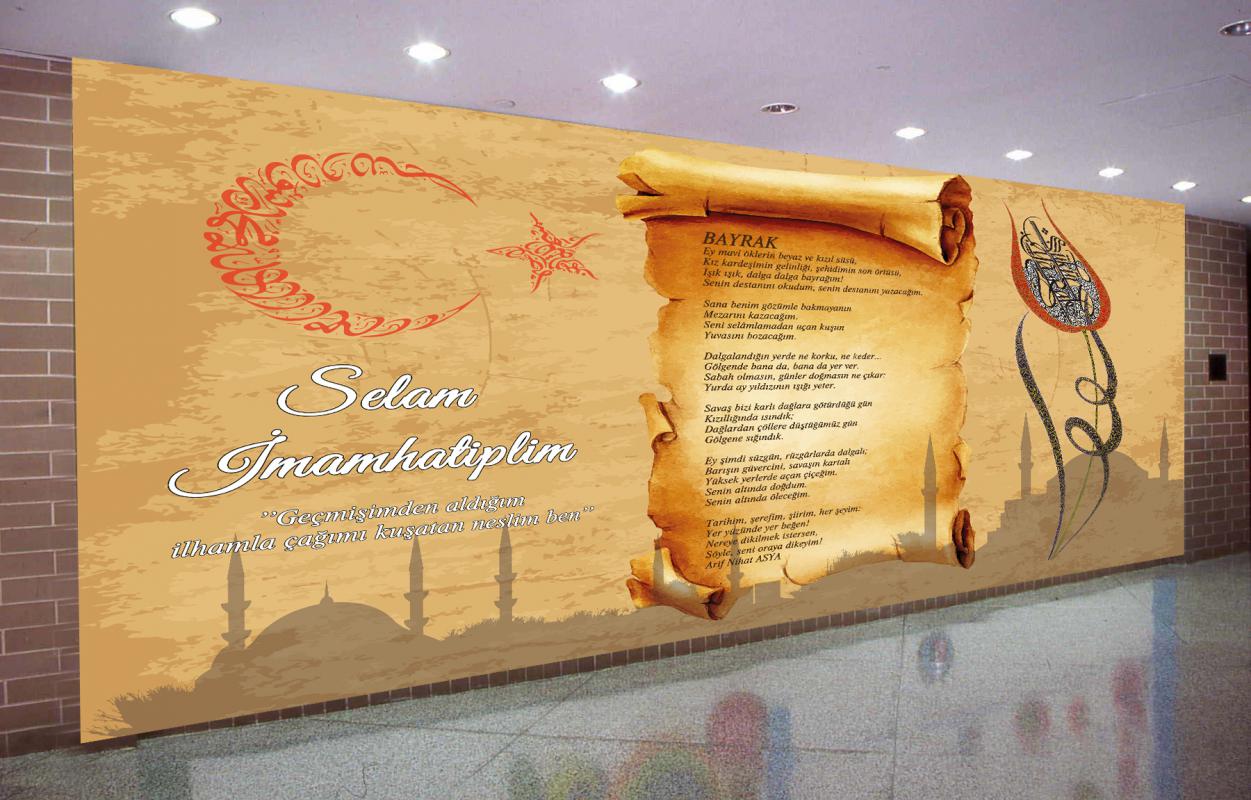 Selam
İmamhatiplim
’’Geçmişimden aldığım
ilhamla çağımı kuşatan neslim ben’’
BAYRAK
Ey mavi öklerin beyaz ve kızıl süsü,
Kız kardeşimin gelinliği, şehidimin son örtüsü,
Işık ışık, dalga dalga bayrağım!
Senin destanını okudum, senin destanını yazacağım.
Sana benim gözümle bakmayanın
Mezarını kazacağım.
Seni selâmlamadan uçan kuşun
Yuvasını bozacağım.
Dalgalandığın yerde ne korku, ne keder...
Gölgende bana da, bana da yer ver.
Sabah olmasın, günler doğmasın ne çıkar:
Yurda ay yıldızının ışığı yeter.
Savaş bizi karlı dağlara götürdüğü gün
Kızıllığında ısındık;
Dağlardan çöllere düştüğümüz gün
Gölgene sığındık.
Ey şimdi süzgün, rüzgârlarda dalgalı;
Barışın güvercini, savaşın kartalı
Yüksek yerlerde açan çiçeğim.
Senin altında doğdum.
Senin altında öleceğim.
Tarihim, şerefim, şiirim, her şeyim:
Yer yüzünde yer beğen!
Nereye dikilmek istersen,
Söyle, seni oraya dikeyim!
Arif Nihat ASYA